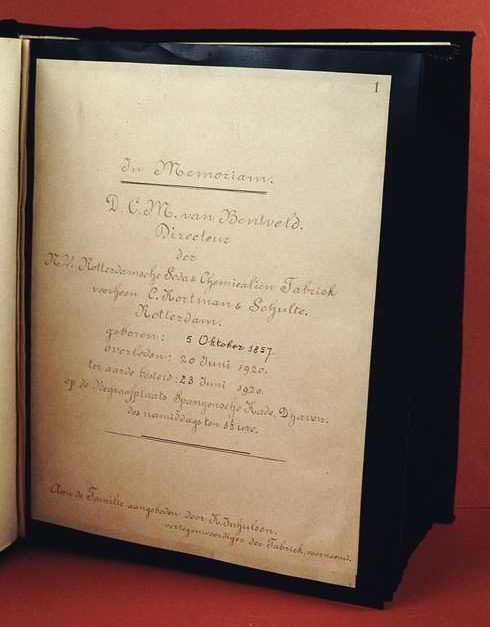 1
In Memoriam.
D. C. M. van Bentveld.
Directeur
der
N.V. Rotterdamsche Soda & Chemicaliën Fabriek
voorheen C. Kortman & Schulte.
Rotterdam.
geboren: 5 Oktober 1857.
overleden: 20 Juni 1920.
ter aarde besteld: 23 Juni 1920.
op de Begraafplaats Spangensche Kade, D'haven.
des namiddags ten ure.
Aan de Familie aangeboden door K.
vertegenwoordiger der Fabriek, voornoemd.